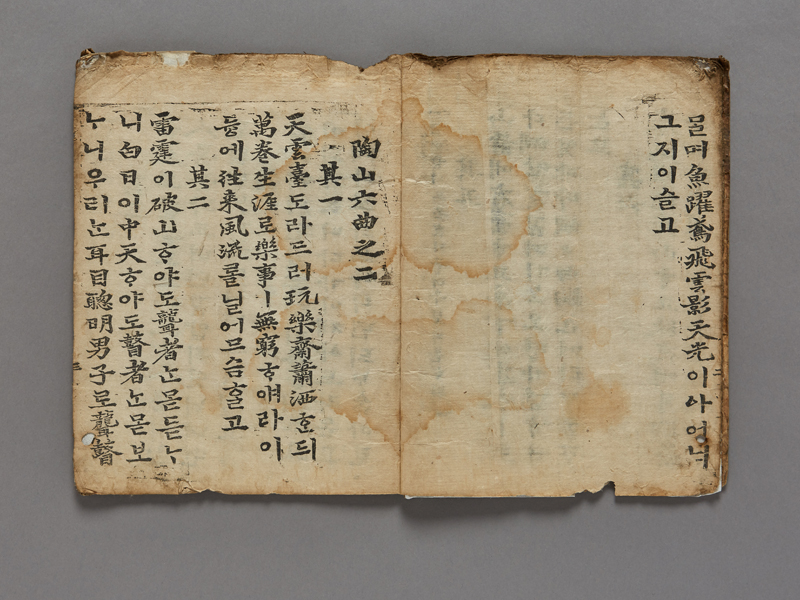 믈며魚躍鳶飛雲影天光이ᅀᅡ어늬
그지이슬고
陶山六曲之二
其一
天雲臺도라드러玩樂齋蕭洒ᄒᆞᆫ듸
萬卷生涯로樂事ㅣ無窮ᄒᆞ얘라이
듕에往來風流ᄅᆞᆯ닐어므슴ᄒᆞᆯ고
其二
雷霆이破山ᄒᆞ야도聾者ᄂᆞᆫ몯듣ᄂᆞ
니白日이中天ᄒᆞ야도瞽者ᄂᆞᆫ몯보
ᄂᆞ니우리ᄂᆞᆫ耳目聰明男子로聾瞽